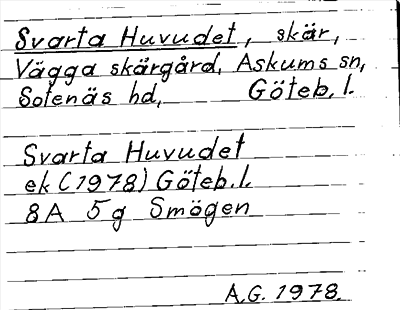 Svarta Huvudet, skär,
Vägga skärgård, Askums sn,
Sotenäs hd, Göteb. l.
Svarta Huvudet
ek (1978) Göteb. l.
8A 5g Smögen
A.G. 1978.